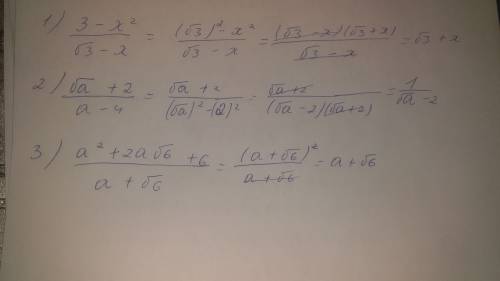 1) (3 - x²)/(√3 - x) = ((√3)² - x²)/(√3 - x) = ((√3 - x)(√3 + x))/(√3 - x) = √3 + x
2) (√a + 2)/(a - 4) = (√a + 2)/((√a)² - (2)²) = (√a + 2)/((√a - 2)(√a + 2)) = 1/(√a - 2)
3) (a² + 2a√6 + 6)/(a + √6) = (a + √6)²/(a + √6) = a + √6